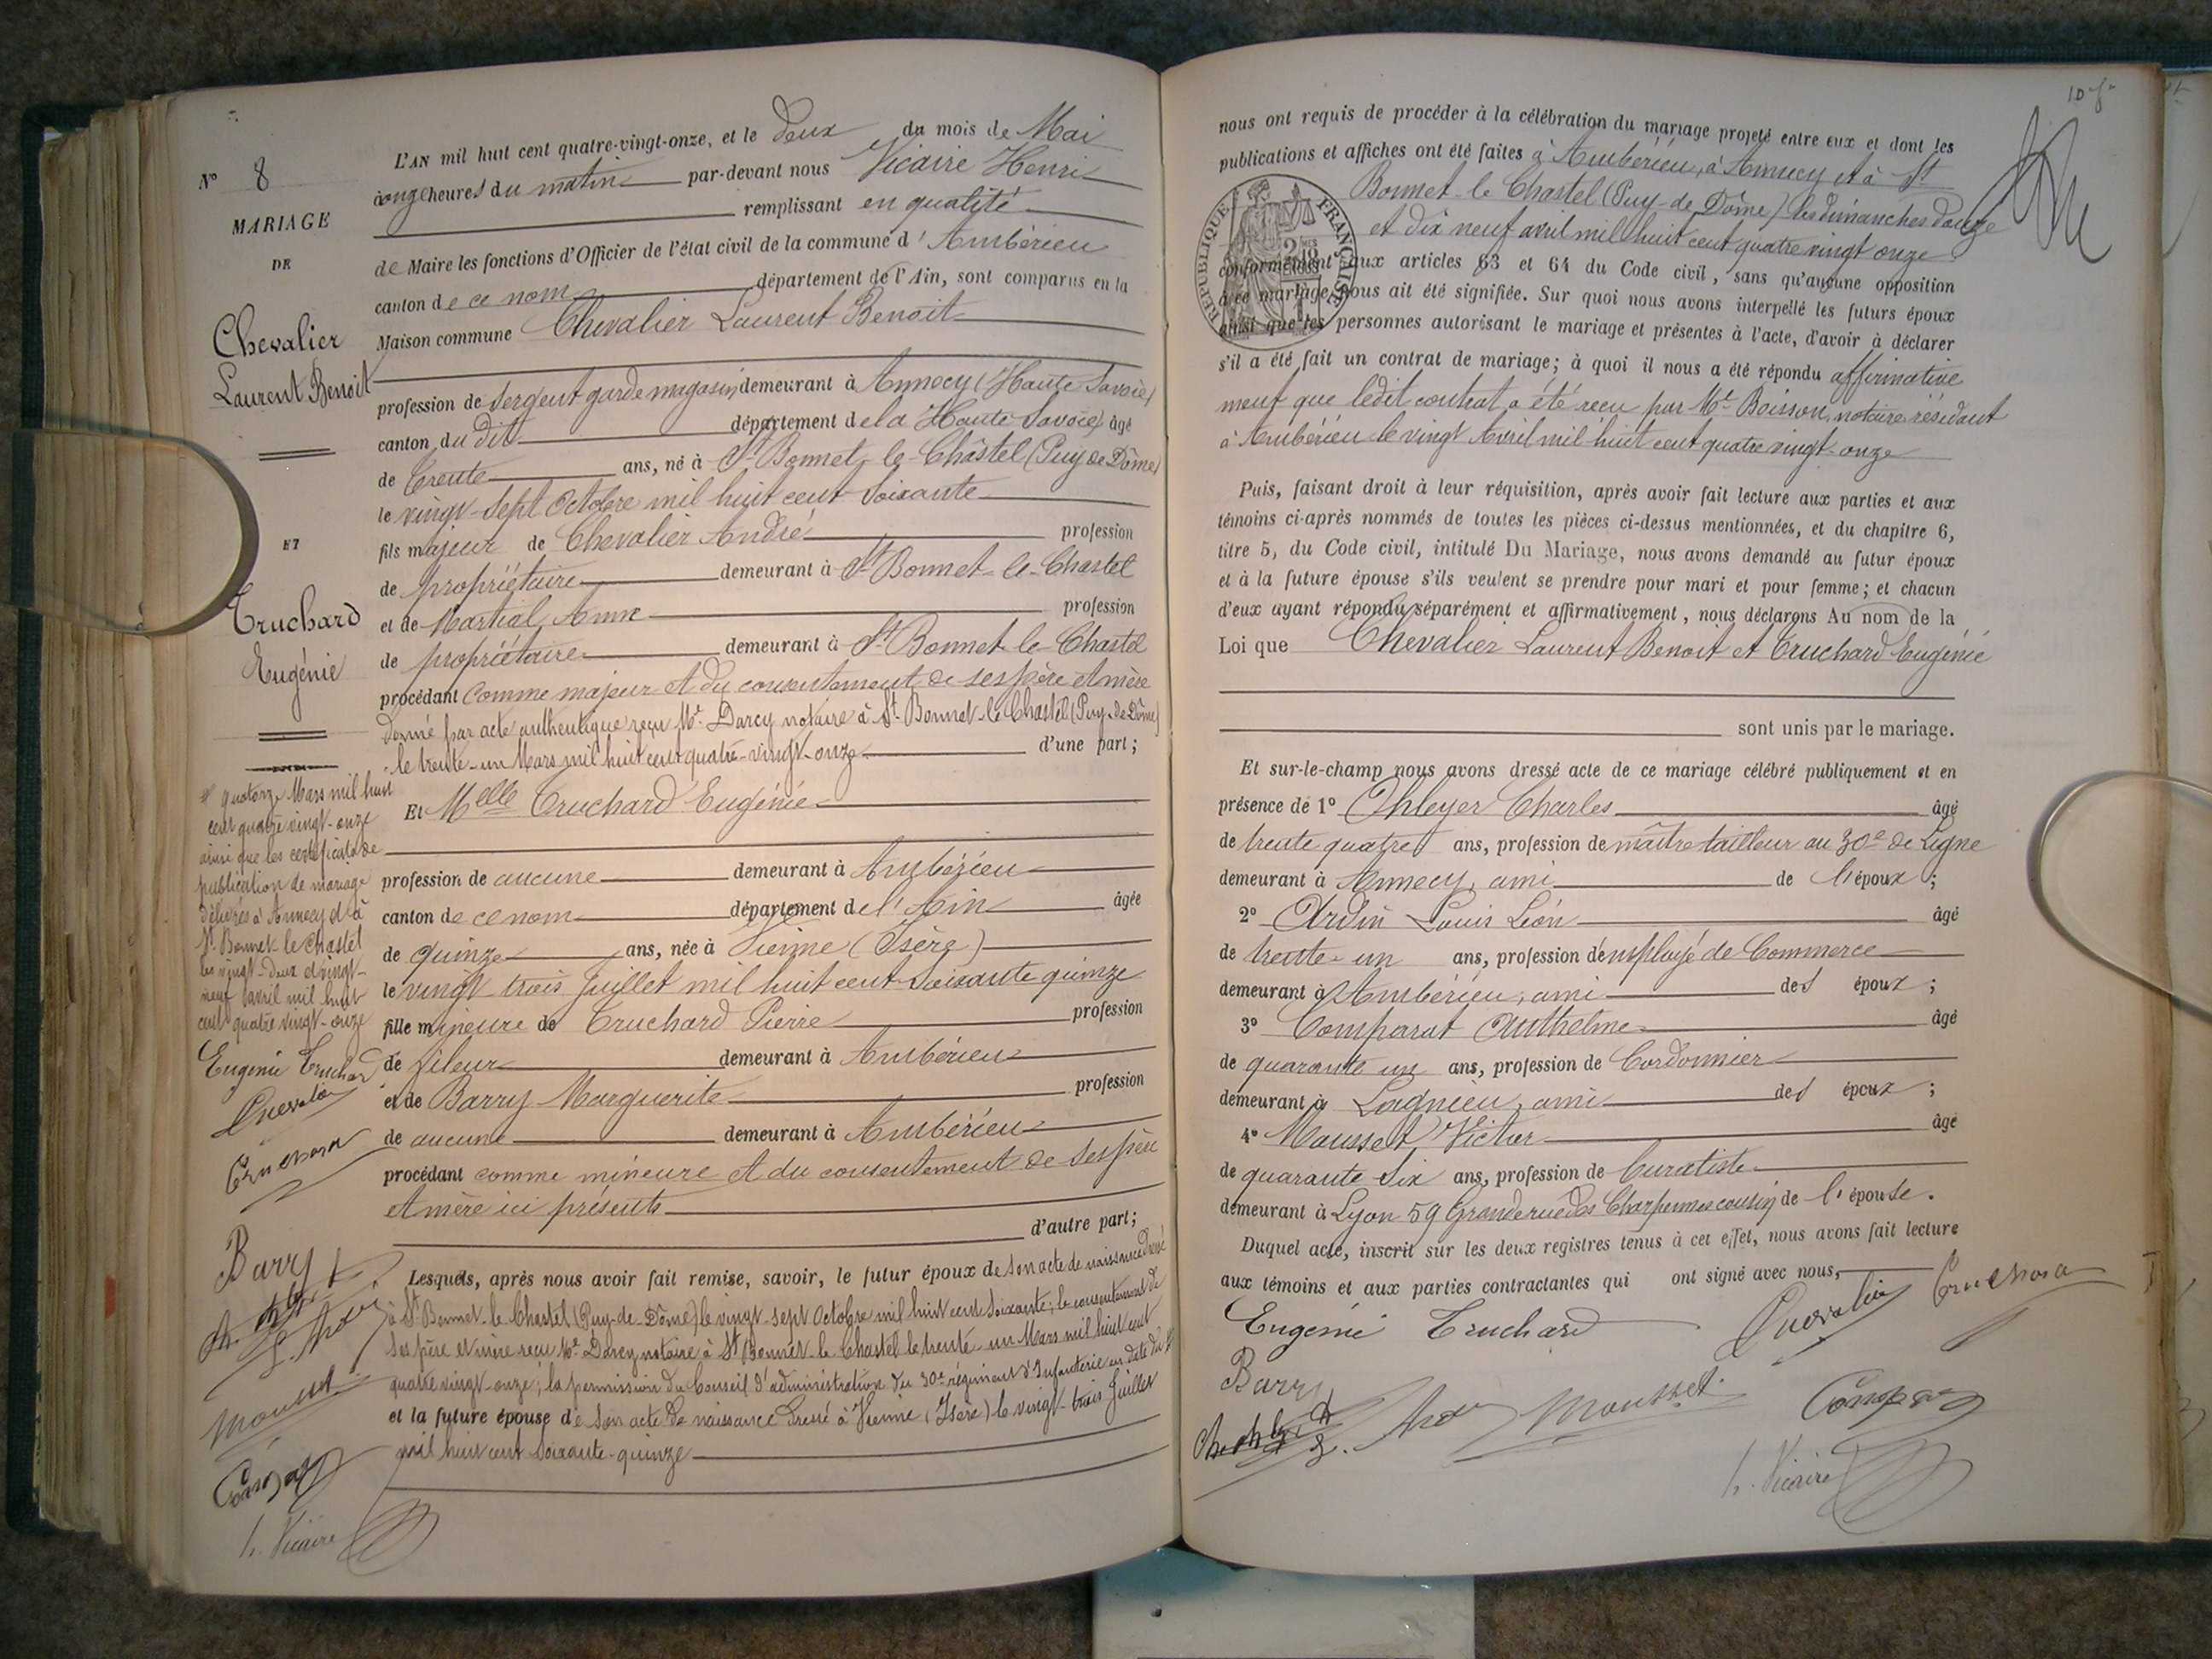 N° 8
MARIAGE
DE
Chevalier
Laurent Benoit
ET
Truchard
Eugénie
quatorze Mars mil huit
cent quatre vingt-onze
ainsi que les certificats de
publication de mariage
délivrés à Annecy et à
St Bonnet le Chastel
les vingt-deux et vingt-
neuf avril mil huit
cent quatre vingt-onze
Eugénie Truchard
Chevalier
Truchard
Barry
Mousset
Comparat
h. Vicaire
L'AN mil huit cent quatre-vingt-onze, et le deux du mois de Mai
à onze heures du matin par-devant nous Vicaire Henri
remplissant en qualité
de Maire les fonctions d'Officier de l'état civil de la commune d'Ambérieu
canton de ce nom département de l'Ain, sont comparus en la
Maison commune Chevalier Laurent Benoit
profession de Sergent garde magasin, demeurant à Annecy (Haute Savoie)
canton du dit département de la Haute Savoie, âgé
de trente ans, né à St Bonnet-le-Châstel (Puy de Dôme)
le vingt-sept Octobre mil huit cent soixante
fils majeur de Chevalier André profession
de propriétaire demeurant à St Bonnet-le-Chastel
et de Martial Anne profession
de propriétaire demeurant à St Bonnet-le-Chastel
procédant comme majeur et du consentement de ses père et mère
donné par acte authentique reçu Me Darcy notaire à St Bonnet-le-Chastel (Puy-de-Dôme)
le trente-un Mars mil huit cent quatre-vingt-onze d'une part;
Et Melle Truchard Eugénie
profession de aucune demeurant à Ambérieu
canton de ce nom département de l'Ain âgée
de quinze ans, née à Vienne (Isère)
le vingt trois Juillet mil huit cent soixante quinze
fille mineure de Truchard Pierre profession
de fileur demeurant à Ambérieu
et de Barry Marguerite profession
de aucune demeurant à Ambérieu
procédant comme mineure et du consentement de ses père
et mère ici présents
d'autre part;
Lesquels, après nous avoir fait remise, savoir, le futur époux de son acte de naissance dressé
à St Bonnet-le-Chastel (Puy-de-Dôme) le vingt-sept Octobre mil huit cent soixante; le consentement de
ses père et mère reçu Me Darcy notaire à St Bonnet-le-Chastel le trente-un Mars mil huit cent
quatre vingt-onze; la permission du Conseil d'administration du 30e régiment d'Infanterie en date du
et la future épouse de son acte de naissance dressé à Vienne (Isère) le vingt-trois Juillet
mil huit cent soixante-quinze
nous ont requis de procéder à la célébration du mariage projeté entre eux et dont les
publications et affiches ont été faites à Ambérieu, à Annecy et à St
Bonnet-le Chastel (Puy-de Dôme) les dimanches douze
et dix neuf avril mil huit cent quatre vingt onze
RÉPUBLIQUE FRANÇAISE
conformément aux articles 63 et 64 du Code civil, sans qu'aucune opposition
à ce mariage nous ait été signifiée. Sur quoi nous avons interpellé les futurs époux
ainsi que les personnes autorisant le mariage et présentes à l'acte, d'avoir à déclarer
s'il a été fait un contrat de mariage; à quoi il nous a été répondu affirmative
ment que ledit contrat a été reçu par Me Boisson, notaire résidant
à Ambérieu le vingt Avril mil huit cent quatre vingt-onze
Puis, faisant droit à leur réquisition, après avoir fait lecture aux parties et aux
témoins ci-après nommés de toutes les pièces ci-dessus mentionnées, et du chapitre 6,
titre 5, du Code civil, intitulé Du Mariage, nous avons demandé au futur époux
et à la future épouse s'ils veulent se prendre pour mari et pour femme; et chacun
d'eux ayant répondu séparément et affirmativement, nous déclarons Au nom de la
Loi que Chevalier Laurent Benoit et Truchard Eugénie
sont unis par le mariage.
Et sur-le-champ nous avons dressé acte de ce mariage célébré publiquement et en
présence de 1° Ohleyer Charles âgé
de trente quatre ans, profession de maître tailleur au 30e de Ligne
demeurant à Annecy, ami de l'époux;
2° Ardin Louis Léon âgé
de trente-un ans, profession d'employé de Commerce
demeurant à Ambérieu, ami des époux;
3° Comparat Anthelme âgé
de quarante un ans, profession de Cordonnier
demeurant à Lagnieu, ami des époux;
4° Mousset Victor âgé
de quarante six ans, profession de Curatiste
demeurant à Lyon 59 Grande rue des Charpennes cousin de l'épouse.
Duquel acte, inscrit sur les deux registres tenus à cet effet, nous avons fait lecture
aux témoins et aux parties contractantes qui ont signé avec nous,
Eugénie Truchard Chevalier Truchard
Barry
Mousset Comparat
h. Vicaire